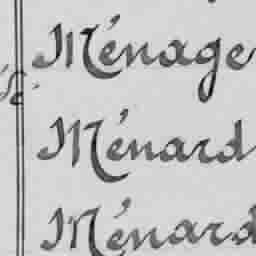 Ménage
Ménard
Ménard